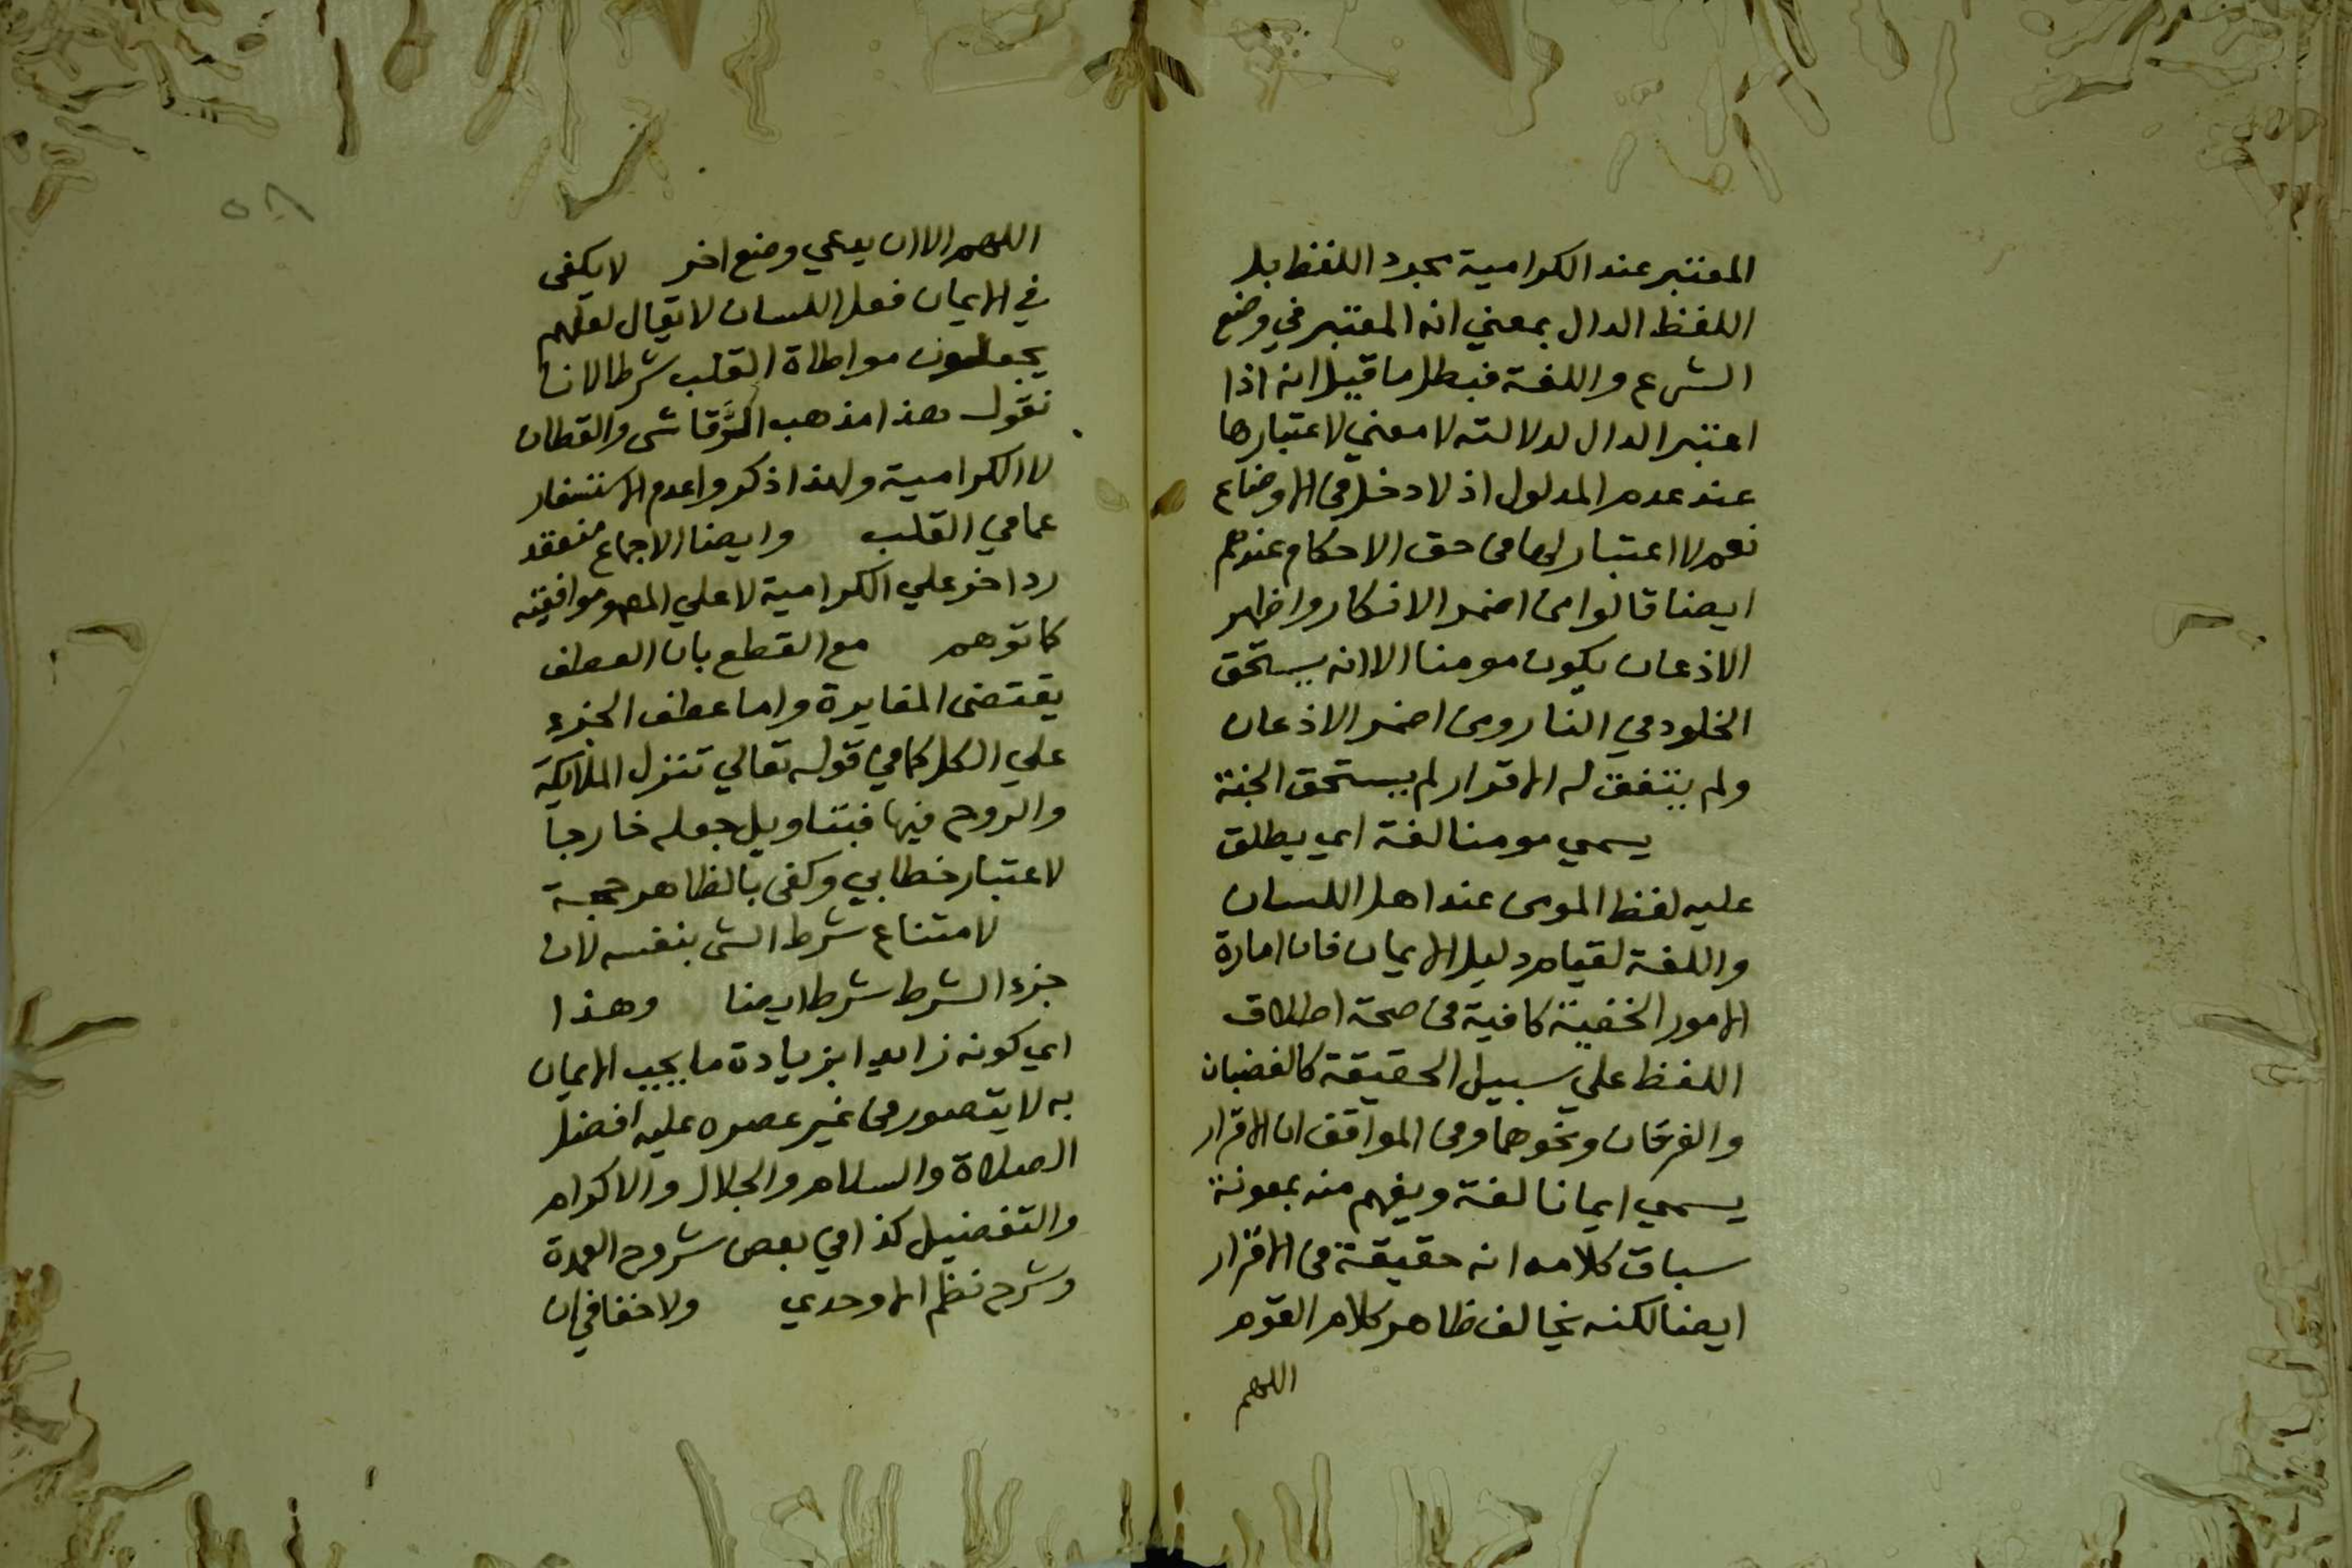 المعتبر عند الكرامية مجرد اللفظ بل
اللفظ الدال بمعني انه المعتبر في وضع
الشرع واللغة فبطل ما قيل انه اذا
اعتبر الدال لدلالته لا معني لاعتبارها
عند عدم المدلول اذ لا دخل في الاوضاع
نعم لا اعتبار لها في حق الاحكام عندهم
ايضا قالوا من اضمر الانكار واظهر
الاذعان يكون مومنا الا انه يستحق
الخلود في النار ومن اضمر الاذعان
ولم يتفق له الاقرار لم يستحق الجنة
يسمي مومنا لغة اي يطلق
عليه لفظ المومن عند اهل اللسان
واللغة لقيام دليل الايمان فان امارة
الامور الخفية كافية في صحة اطلاق
اللفظ علي سبيل الحقيقة كالغضبان
والفرحان ونحوهما وفي المواقف ان الاقرار
يسمي ايمانا لغة ويفهم منه بمعونة
سياق كلامه انه حقيقة في الاقرار
ايضا لكنه يخالف ظاهر كلام القوم
اللهم
٥٨
اللهم الا ان يدعي وضع اخر لا يكفى
في الايمان فعل اللسان لا يقال لعلهم
يجعلون مواطاة القلب شرطا لانا
نقول هذا مذهب الرَّقاشى والقطان
لا الكرامية ولهذا ذكروا عدم الاستفسار
عما في القلب وايضا الاجماع منعقد
رد اخر علي الكرامية لا علي المص وموافقيه
كا توهم مع القطع بان العطف
يقتضى المغايرة واما عطف الجزء
علي الكل كما في قوله تعالي تنزل الملايكة
والروح فيها فبتاويل جعله خارجا
لاعتبار خطابي وكفى بالظاهر حجة
لامتناع شرط الشى بنفسه لان
جزء الشرط شرط ايضا وهذا
اي كونه زايدا بزيادة ما يجب الايمان
به لا يتصور في غير عصره عليه افضل
الصلاة والسلام والجلال والاكرام
والتفضيل كذا في بعض شروح العمدة
وشرح نظم الاوحدي ولا خفا في ان